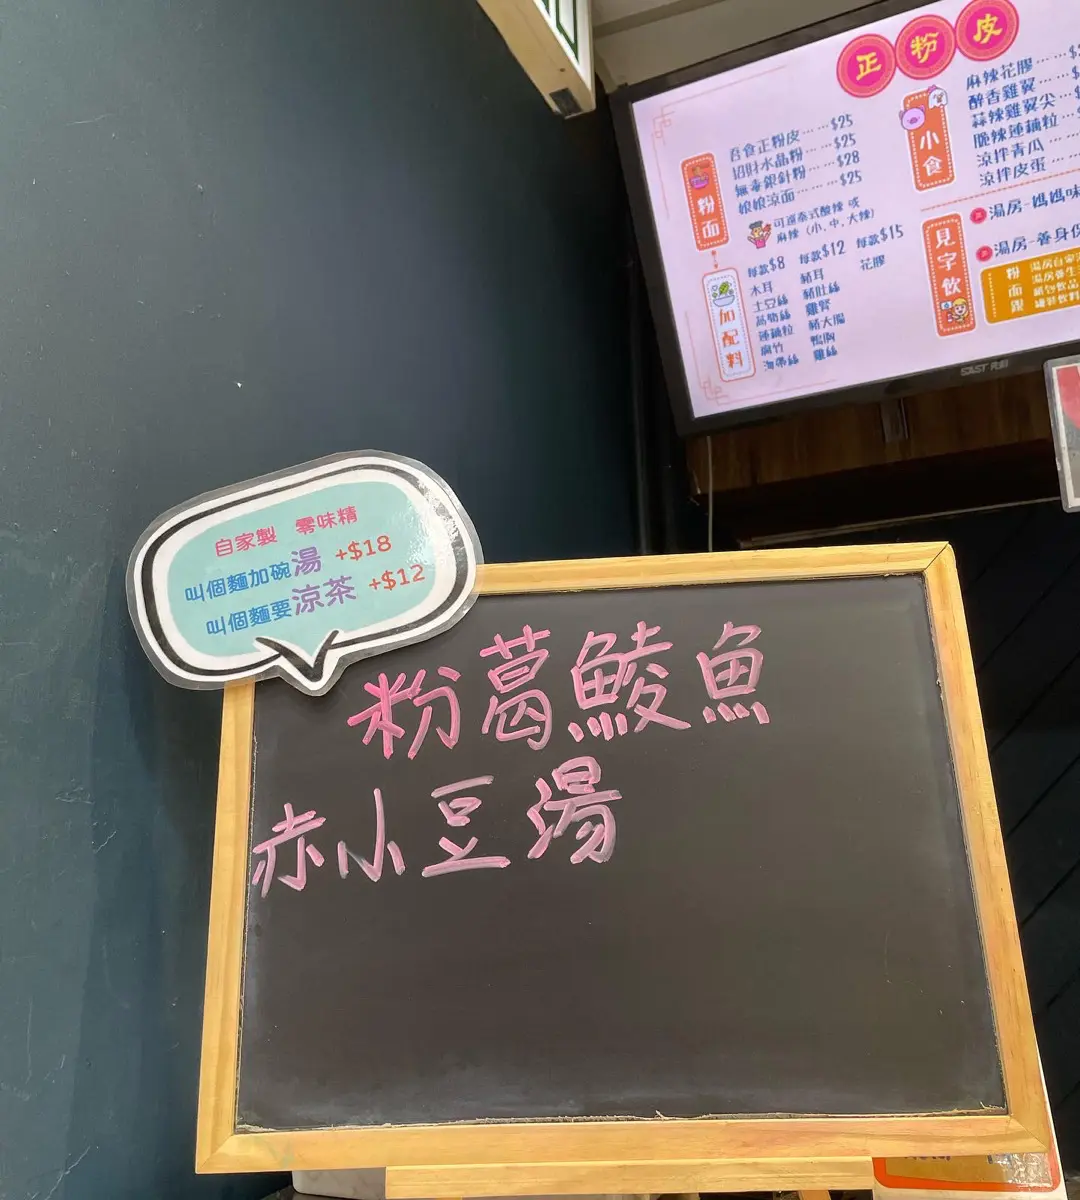 正粉皮
粉面
吾食正粉皮……$25
招財水晶粉…$25
無毒銀針粉…$28
娘娘涼面………$25
可選泰式酸辣 或
麻辣 (小,中,大辣)
加配料
每款$8
木耳
土豆絲
萵筍絲
蓮藕粒
腐竹
海帶絲
每款$12
豬耳
豬肚絲
雞腎
豬大腸
鴨胸
雞絲
每款$15
花膠
小食
麻辣花膠
醉香雞翼
蒜辣雞翼尖
脆辣蓮藕粒
涼拌青瓜
涼拌皮蛋
見字飲
湯房-媽媽味
湯房-養身
粉面跟
EAST
自家製 零味精
叫個麵加碗湯 +$18
叫個麵要涼茶 +$12
粉葛鯪魚
赤小豆湯